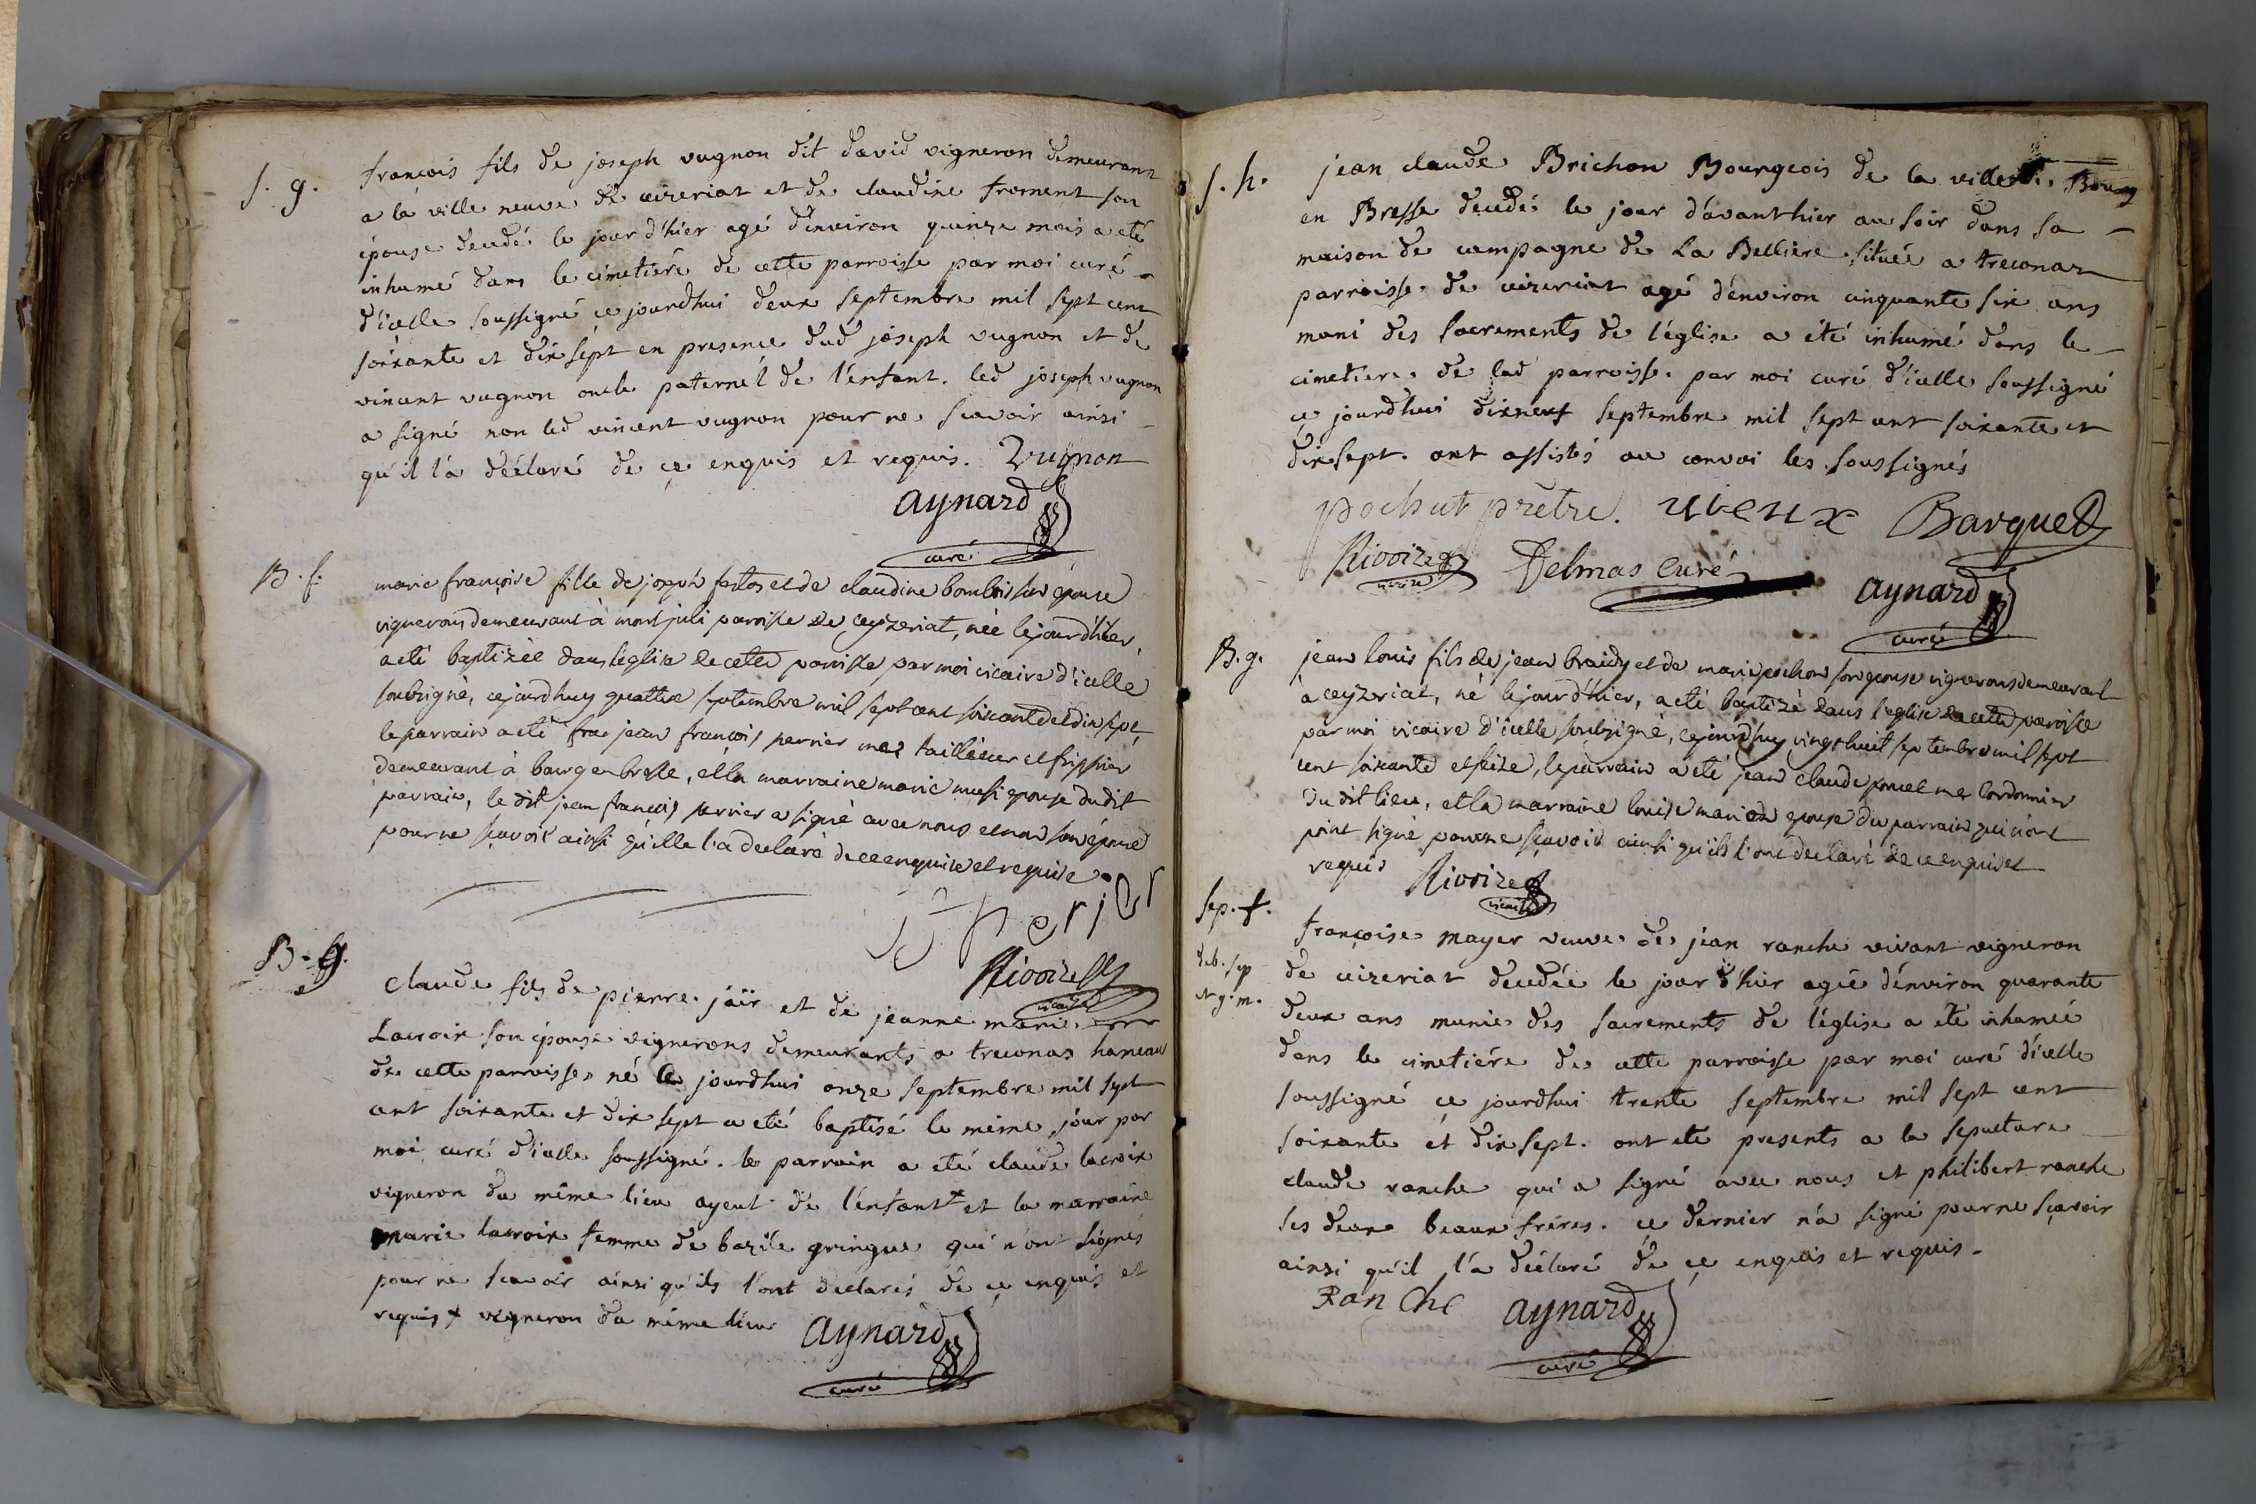 s. g.
françois fils de joseph vugnon dit david vigneron demeurant
a la ville neuve de ceizeriat et de claudine froment son
épouse decedé le jour d'hier agé d'environ quinze mois a eté
inhumé dans le cimetiére de cette parroisse par moi curé
d'icelle soussigné ce jourdhui deux septembre mil sept cent
soixante et dix sept en presence dud joseph vugnon et de
vincent vugnon oncle paternel de l'enfant. led joseph vugnon
a signé non led vincent vugnon pour ne scavoir ainsi
qu'il l'a déclaré de ce enquis et requis. Vugnon
aynard
curé
B. f.
marie françoise fille de joseph et de claudine son epouse
vignerons demeurant à mont juli paroisse de ceyzeriat, née le jour d'hier,
a eté baptizée dans l'eglise de cette paroisse par moi vicaire d'icelle
soubsigné, ce jourd'huy quattre septembre mil sept cent soixante et dix sept
le parrain a eté jean françois perrier me tailleur et frippier
demeurant à bourg en bresse, et la marraine marie epouse du dit
parrain, le dit jean françois perrier a signé avec nous et non son épouse
pour ne sçavoir ainsi qu'elle l'a declaré de ce enquise et requise.
jf perier
Rivoire
vicaire
B. g.
claude fils de pierre jäir et de jeanne marie
Lacroix son épouse vignerons demeurants a treconas hameau
de cette parroisse né ce jourdhui onze septembre mil sept
cent soixante et dix sept a eté baptisé le même jour par
moi curé d'icelle soussigné. le parrain a eté claude lacroix
vigneron du même lieu ayeul de l'enfant x et la marraine
marie lacroix femme de bazile gringue qui n'ont signés
pour ne scavoir ainsi qu'ils l'ont déclarés de ce enquis et
requis x vigneron du même lieu
aynard
curé
s. h.
jean claude Brichon Bourgeois de la ville de Bourg
en Bresse decedé le jour d'avant hier au soir dans sa
maison de campagne de La Bellière située a treconas
parroisse de ceizeriat agé d'environ cinquante six ans
muni des sacrements de l'église a été inhumé dans le
cimetiere de lad parroisse par moi curé d'icelle soussigné
ce jourdhui dixneuf septembre mil sept cent soixante et
dixsept. ont assistés au convoi les soussignés
pochut prêtre. vieux Barquet
Rivoire vicaire Delmas Curé
aynard
curé
B. g.
jean louis fils de jean braidy et de marie pochon son epouse vignerons demeurant
à ceyzeriat, né le jour d'hier, a eté baptizé dans l'eglise de cette paroisse
par moi vicaire d'icelle soubsigné, ce jourd'huy vingt huit septembre mil sept
cent soixante et seize, le parrain a eté jean claude poncet me cordonnier
du dit lieu, et la marraine louise epouse du parrain qui n'ont
point signé pour ne sçavoir ainsi qu'ils l'ont declaré de ce enquis et
requis Rivoire
vicaire
sep. f.
françoise mayer veuve de jean ranche vivant vigneron
de ceizeriat decedée le jour d'hier agée d'environ quarante
deux ans munie des sacrements de l'église a été inhumée
dans le cimetiére de cette parroisse par moi curé d'icelle
soussigné ce jourdhui trente septembre mil sept cent
soixante et dix sept. ont ete presents a la sepulture
claude ranche qui a signé avec nous et philibert ranche
ses deux beaux fréres. ce dernier n'a signé pour ne sçavoir
ainsi qu'il l'a déclaré de ce enquis et requis.
Ranche aynard
curé